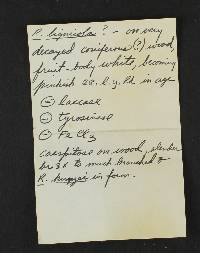 R. lignicola? - on very
decayed coniferous (?) wood,
fruit-body white, becoming
pinkish in age
⊖ laccase
⊖ tyrosinase
⊖ FeCl3
caespitose on wood, slender
br 3x to much branched &
R. in form.